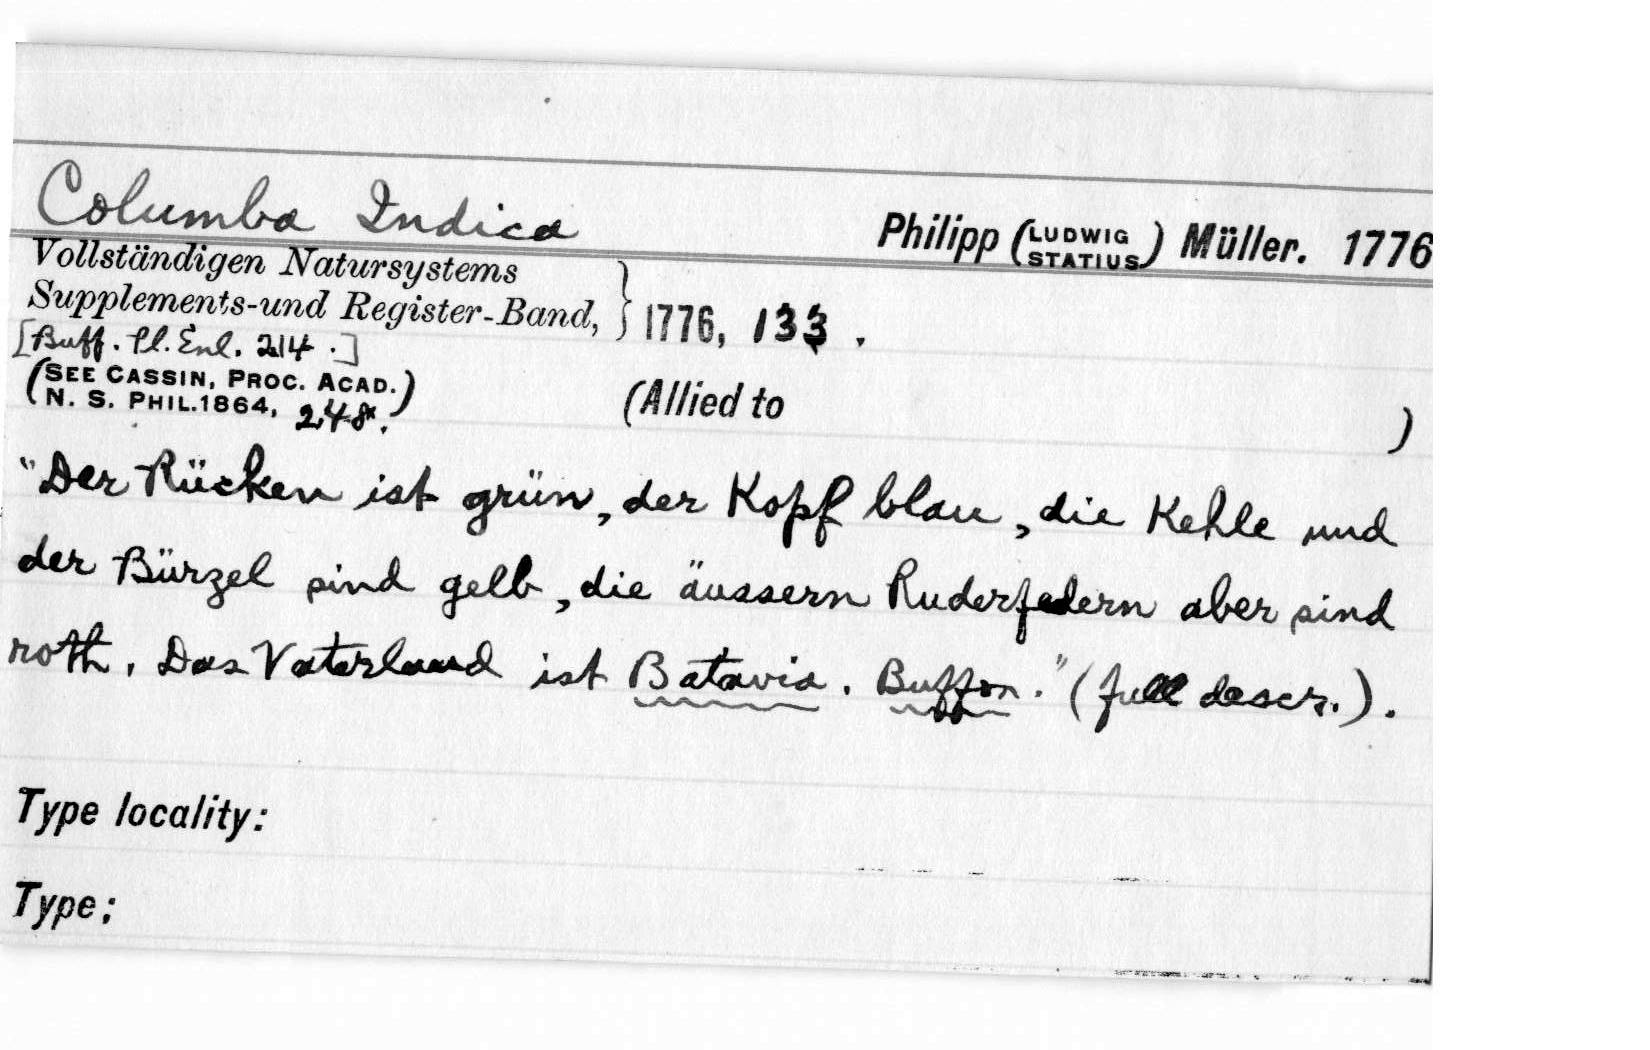 Columba Indica
Philipp (LUDWIG STATIUS) Müller. 1776
Vollständigen Natursystems
Supplements-und Register-Band, } 1776, 133.
[Buff. Pl. Enl. 214.]
(SEE CASSIN, PROC. ACAD.
N. S. PHIL. 1864, 248.)
(Allied to )
"Der Rücken ist grün, der Kopf blau, die Kehle und
der Bürzel sind gelb, die äussern Ruderfedern aber sind
roth. Das Vaterland ist Batavia. Buffon." (full descr.).
Type locality:
Type: